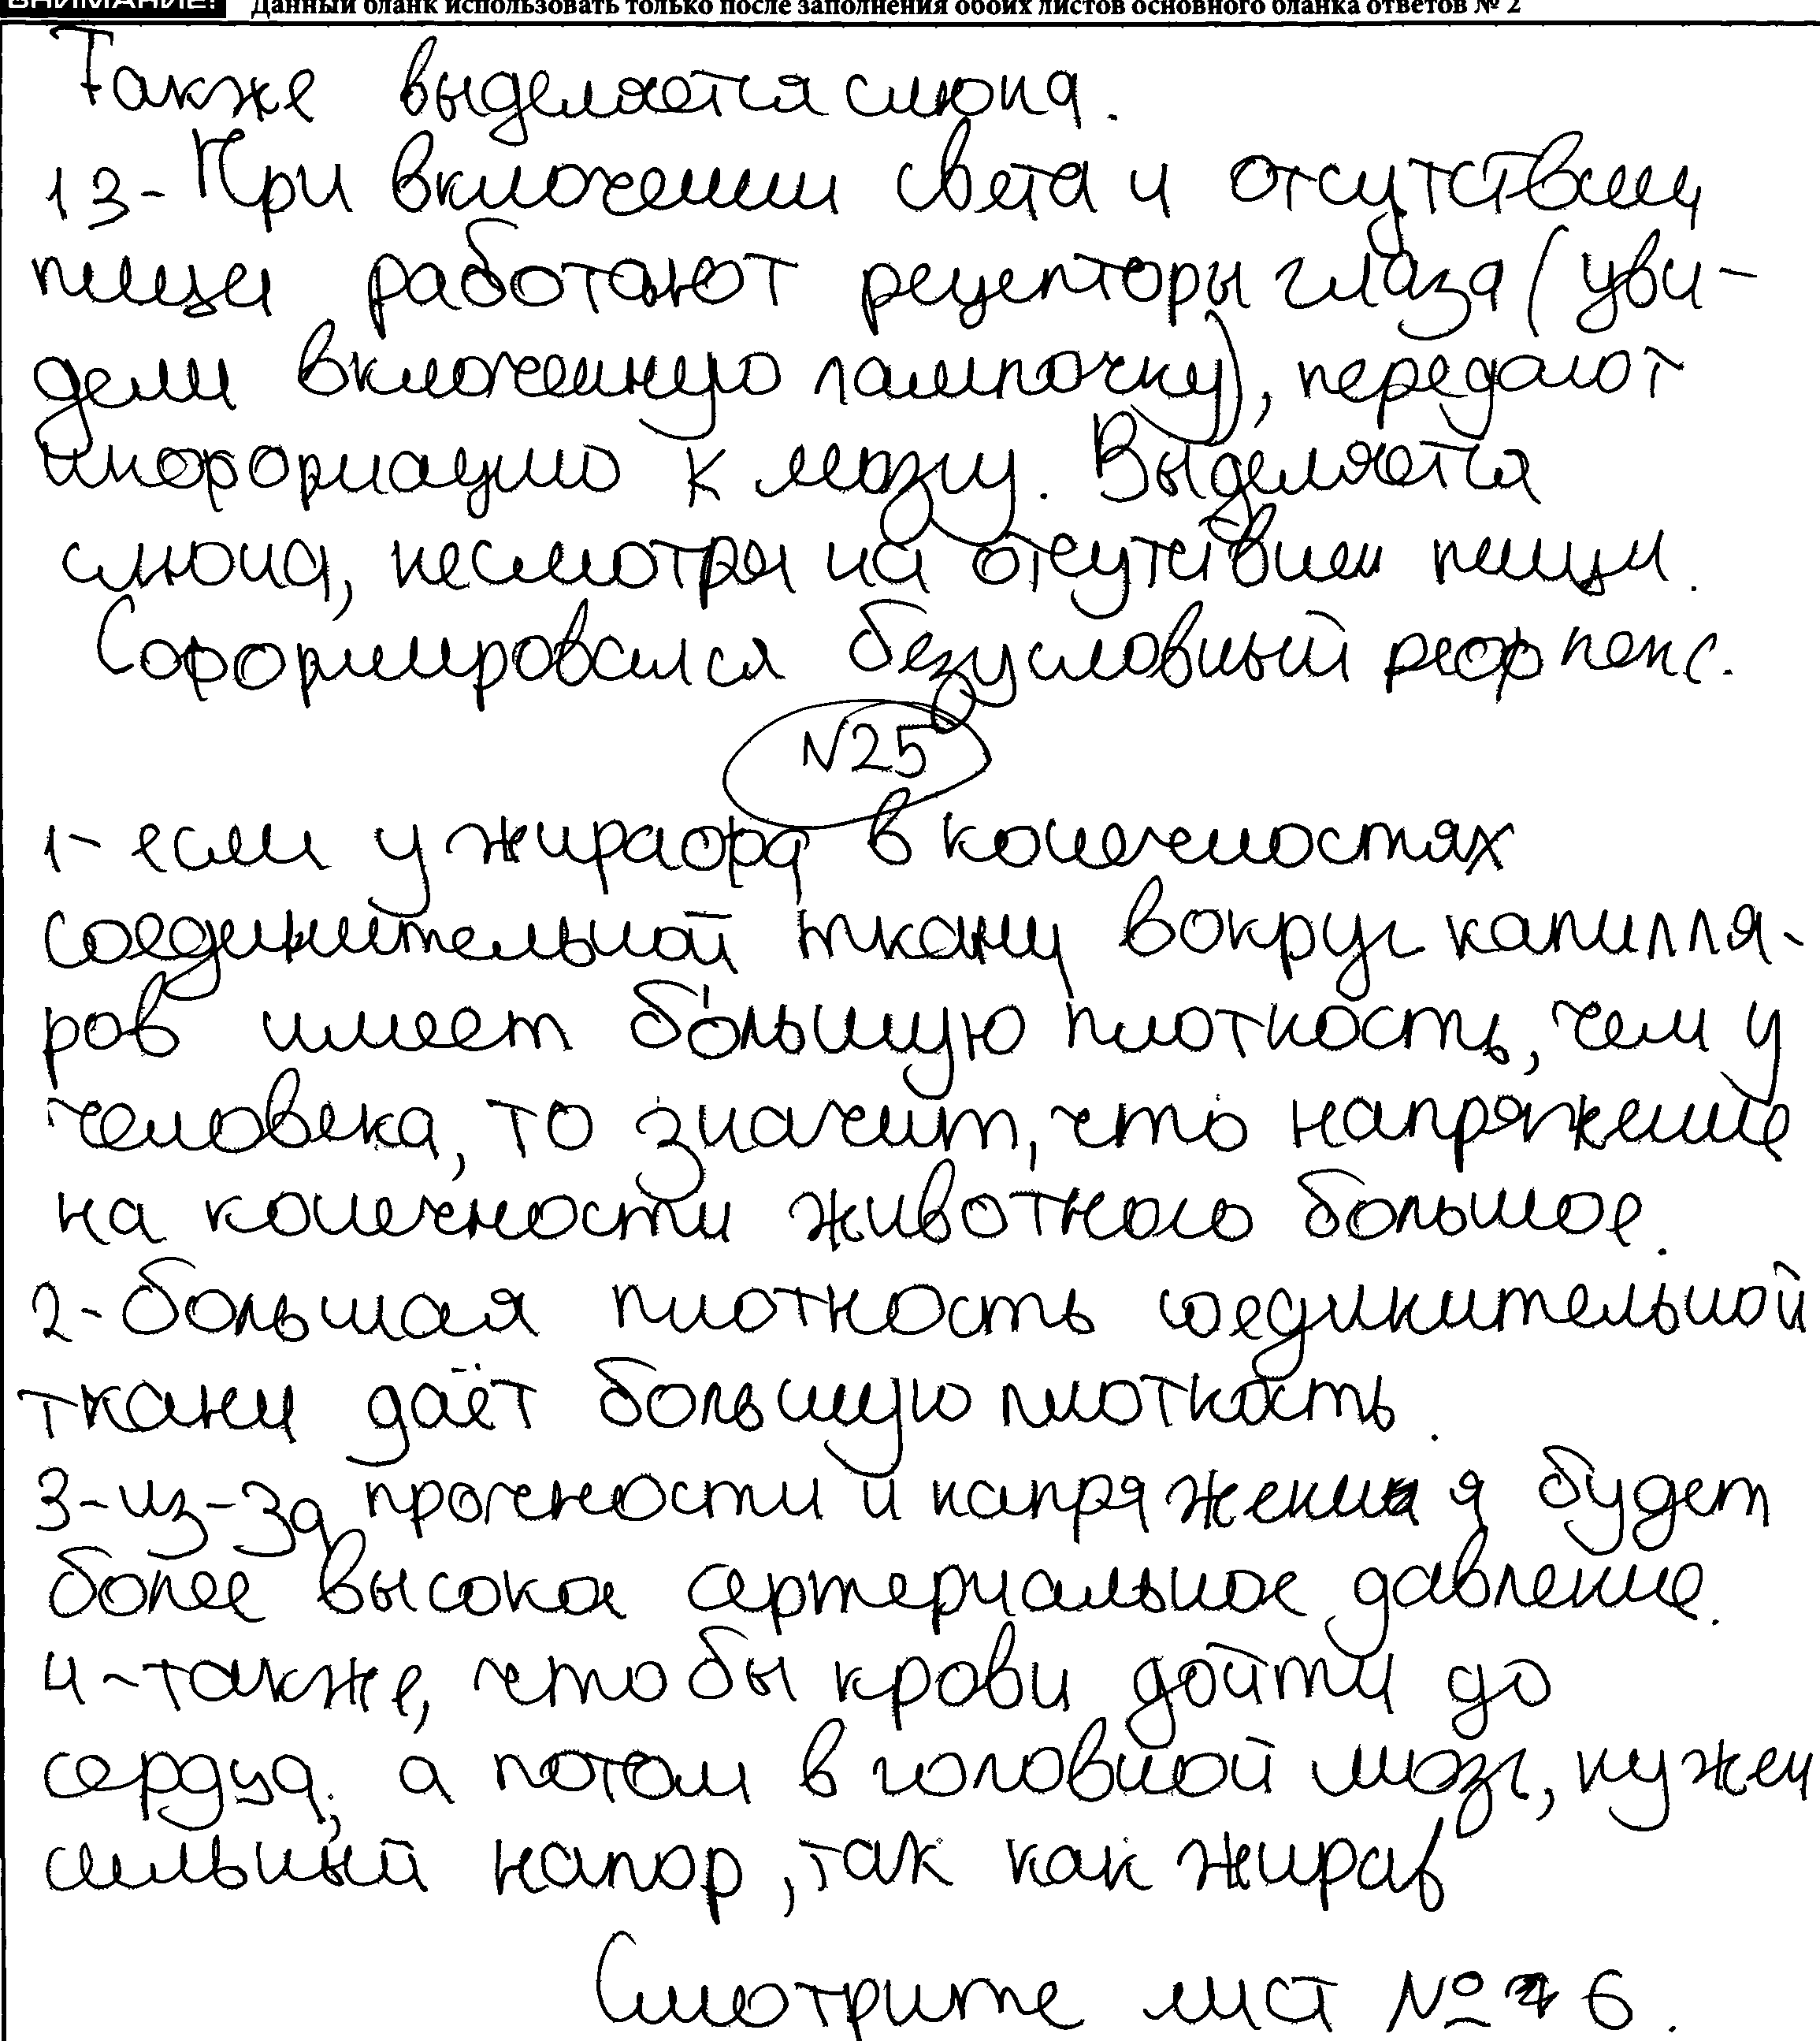 ВНИМАНИЕ! Данный бланк использовать только после заполнения обоих листов основного бланка ответов № 2
Также выделяется слюна.
13-При включении света и отсутствии
пищи работают рецепторы глаза (уви-
дели включенную лампочку), передают
информацию к мозгу. Выделяется
слюна, несмотря на отсутствие пищи.
Сформировался безусловный рефлекс.
№25
1- если у жирафа в конечностях
соединительной ткани вокруг капилля-
ров имеет бо́льшую плотность, чем у
человека, то значит, что напряжение
на конечности животного большое.
2-большая плотность соединительной
ткани даёт большую плоткость.
3-из-за прочности и напряжения будет
более высокое артериальное давление.
4-также, чтобы крови дойти до
сердца, а потом в головной мозг, нужен
сильный напор, так как жирав
Смотрите лист № 6.